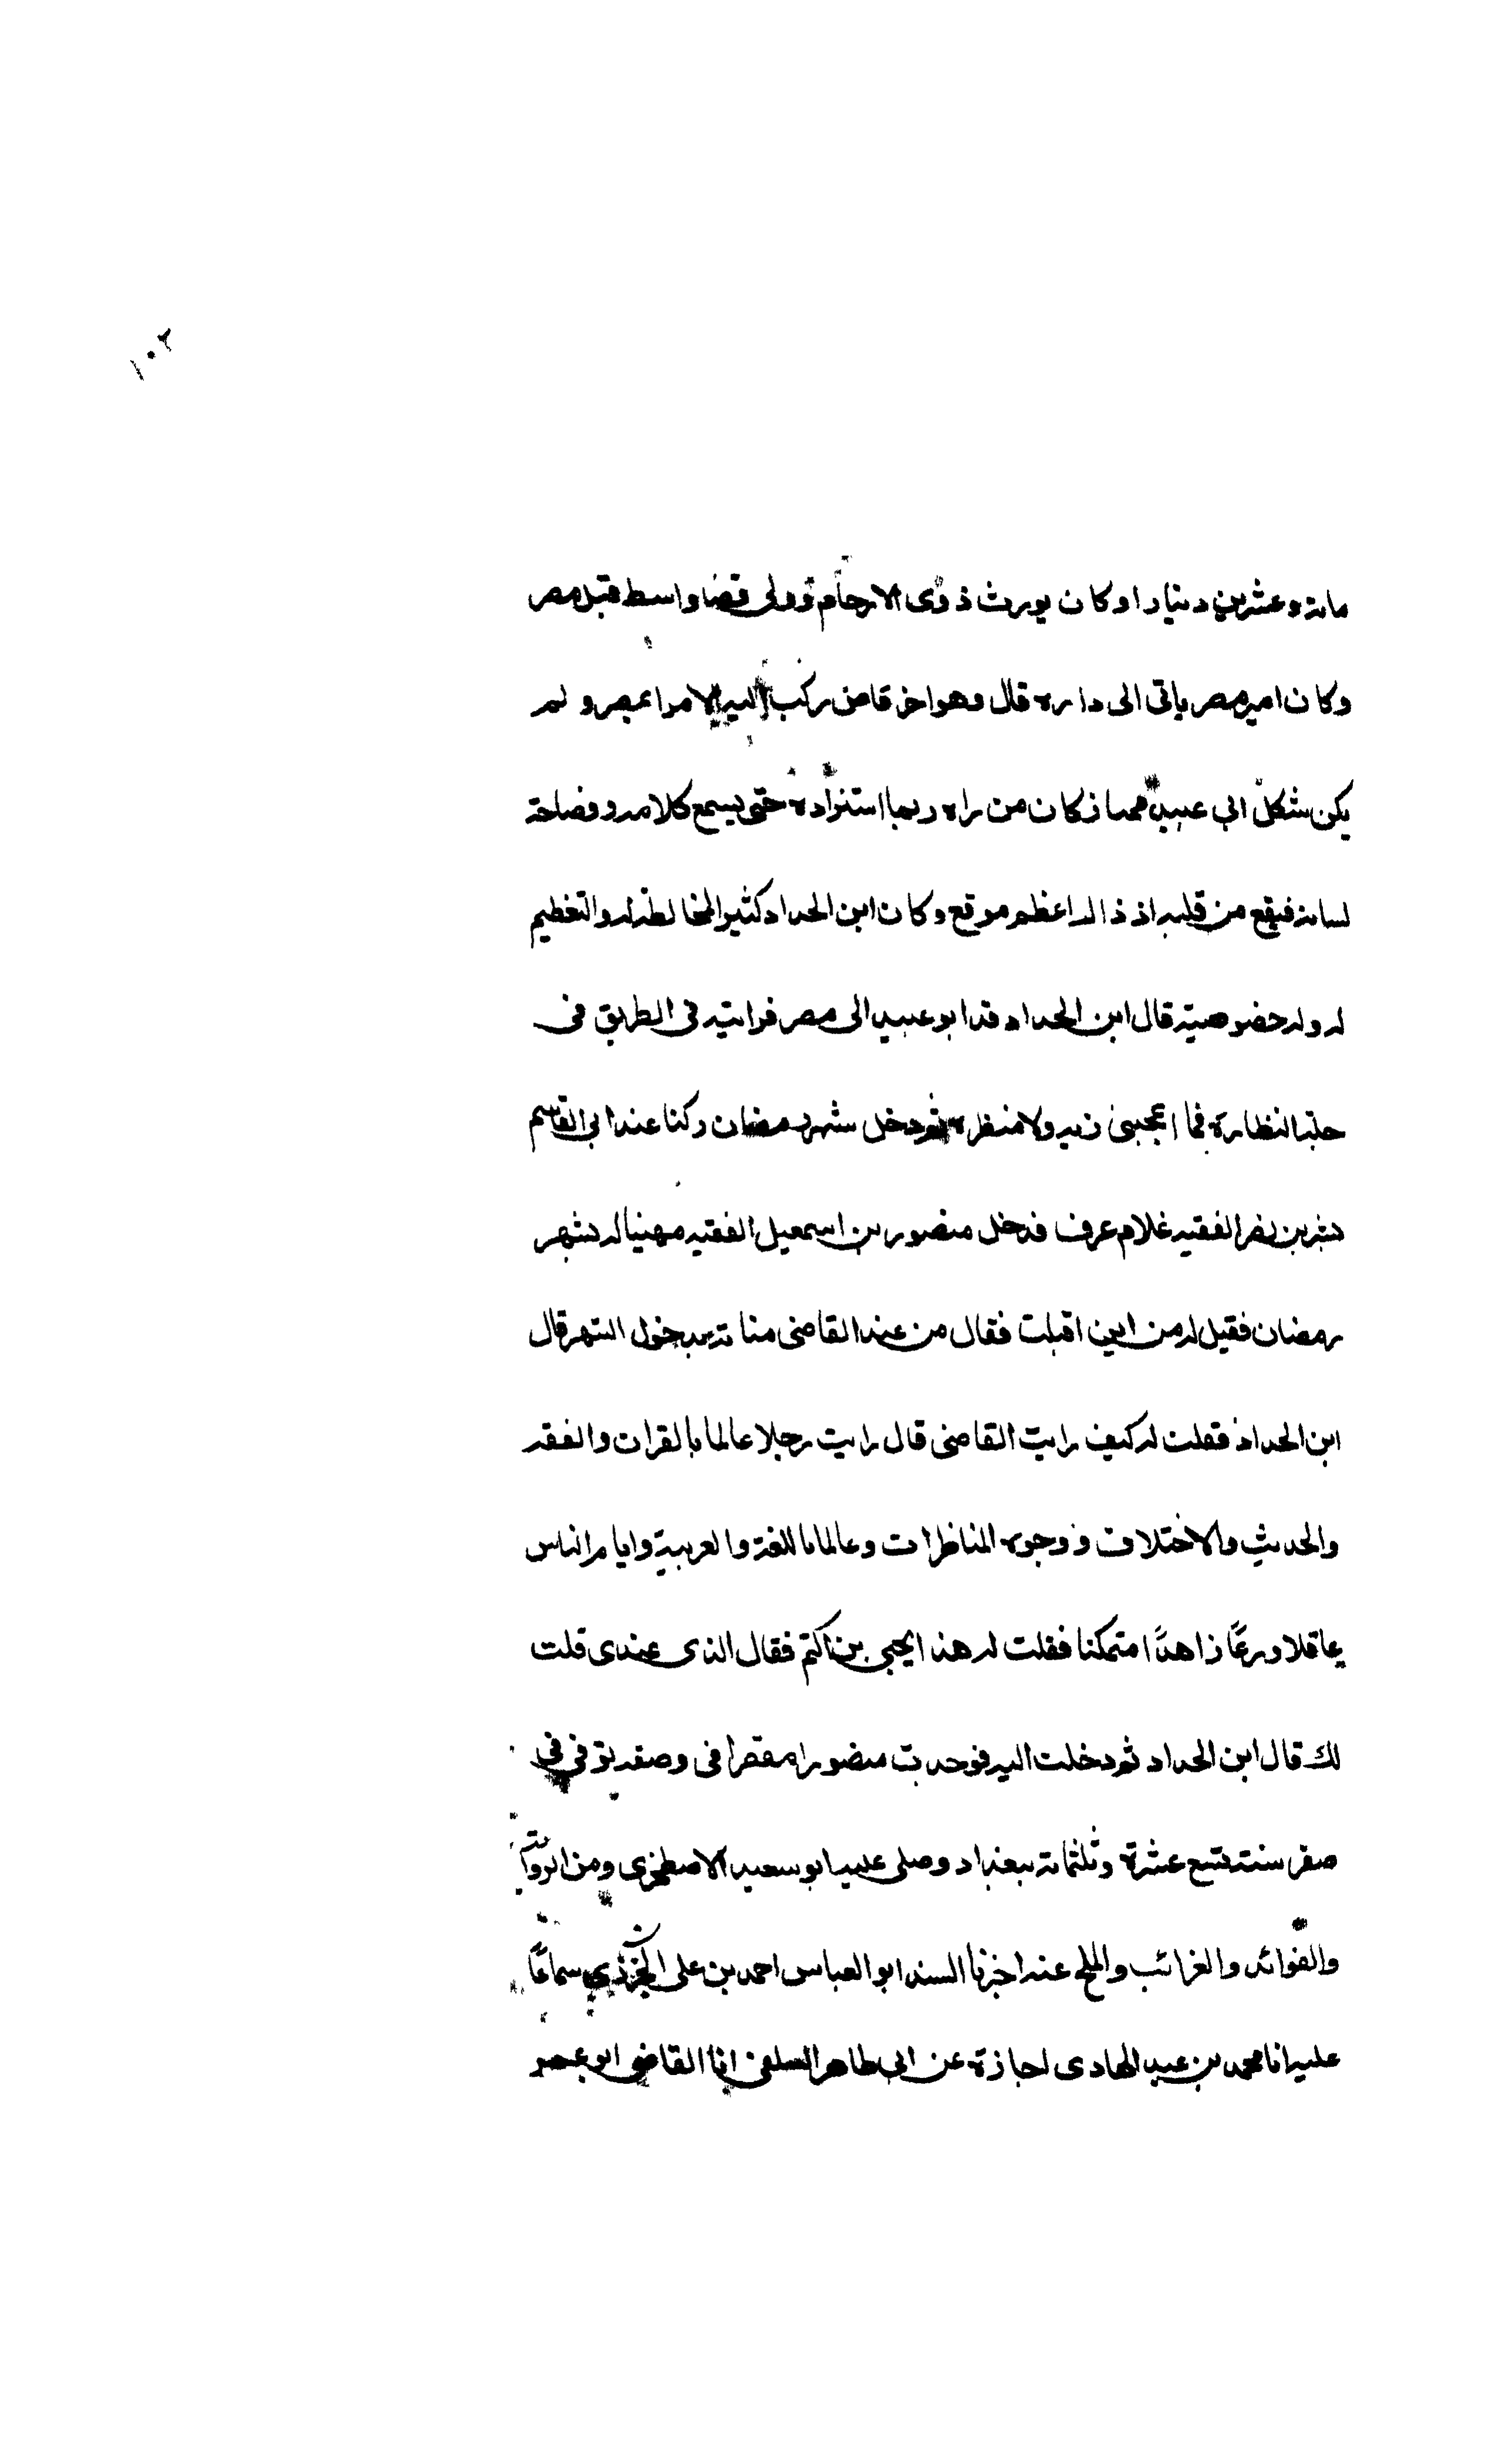 ١٠٢
مائة وعشرين دينارا وكان يورث ذوى الارحام وولى قضا واسط قبل مصر
وكان امير مصر ياتى الى داره قال وهو اخر قاض ركب اليه الامرا بمصر ولم
يكن شكل ابي عبيد فكان من راه ربما استزراه حتى يسمع كلامه وفصاحة
لسانه فيقع من قلبه اذ ذاك اعظم موقع وكان ابن الحداد كثير المخالطة له والتعظيم
له وله خصوصية قال ابن الحداد قدم ابو عبيد الى مصر فراتيه فى الطريق فى
حلبة النظارة فما اعجبنى زيه ولا منظره ثم دخل شهر رمضان وكنا عند ابى القاسم
بشر بن نصر الفقيه غلام عرف فدخل منصور بن اسمعيل الفقيه مهنيا له بشهر
رمضان فقيل له من اين اقبلت فقال من عند القاضى هناته بدخول الشهر قال
ابن الحداد فقلت له كيف رايت القاضى قال رايت رجلا عالما بالقران والفقه
والحديث والاختلاف ووجوه المناظرات وعالما باللغة والعربية وايام الناس
عاقلا ورعًا زاهدًا متمكنا فقلت له هذا يحيى بن اكتم فقال الذى عندى قلت
لك قال ابن الحداد ثم دخلت اليه فوجدت منصورا مقصرا فى وصفه توفى فى
صفر سنة تسع عشرة وثلثمائة ببغداد وصلى عليه ابو سعيد الاصطخرى ومن الرواية
والفوائد والغرائب والملح عنه اخبرنا المسند ابو العباس احمد بن على الجزرى سماعًا
عليه انا محمد بن عبد الهادى اجازة عن ابى طاهر السلفى انا القاضى ابو عمر